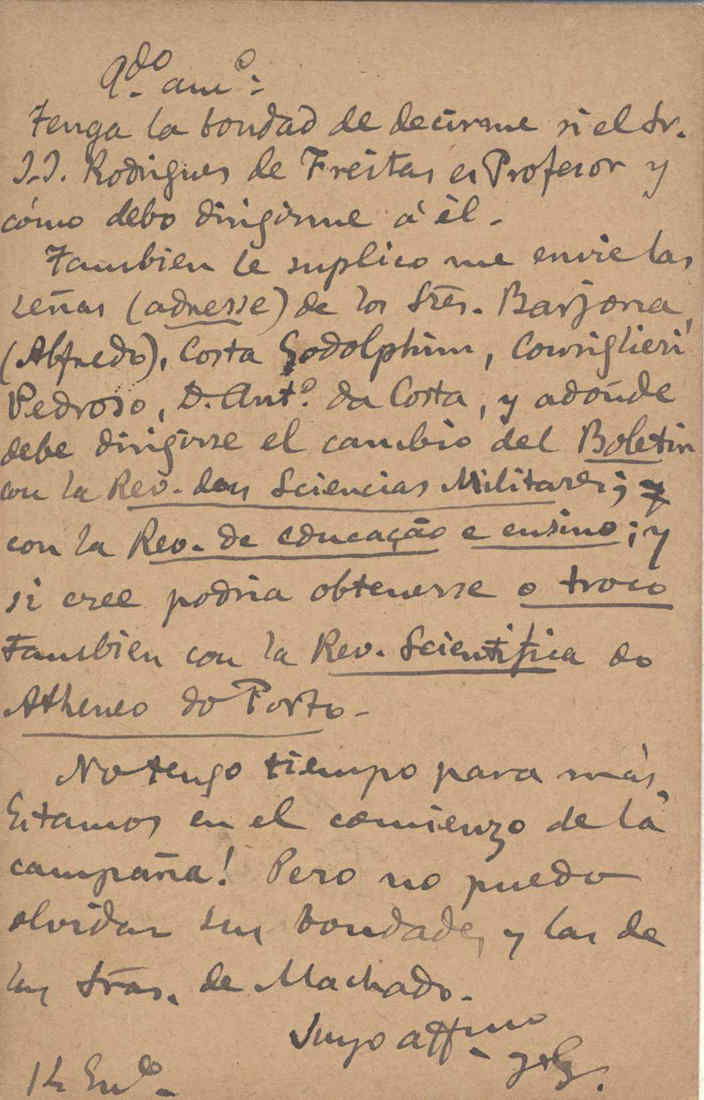 Qdo. amo.:
Tenga la bondad de decirme si el Sr.
J.J. Rodrigues de Freitas es Profesor y
cómo debo dirigirme á él.
Tambien le suplico me envie las
señas (adresse) de los Sres. Barjona
(Alfredo), Costa Godolphim, Consiglieri
Pedroso, D. Anto. da Costa, y adónde
debe dirigirse el cambio del Boletin
con la Rev. das Sciencias Militares;
con la Rev. de educação e ensino; y
si cree podria obtenerse o troco
tambien con la Rev. Scientifica do
Atheneo do Porto.
No tengo tiempo para más.
Estamos en el comienzo de la
campaña! Pero no puedo
olvidar sus bondades, y las de
las Sras. de Machado.
Suyo affmo
14 Eno.